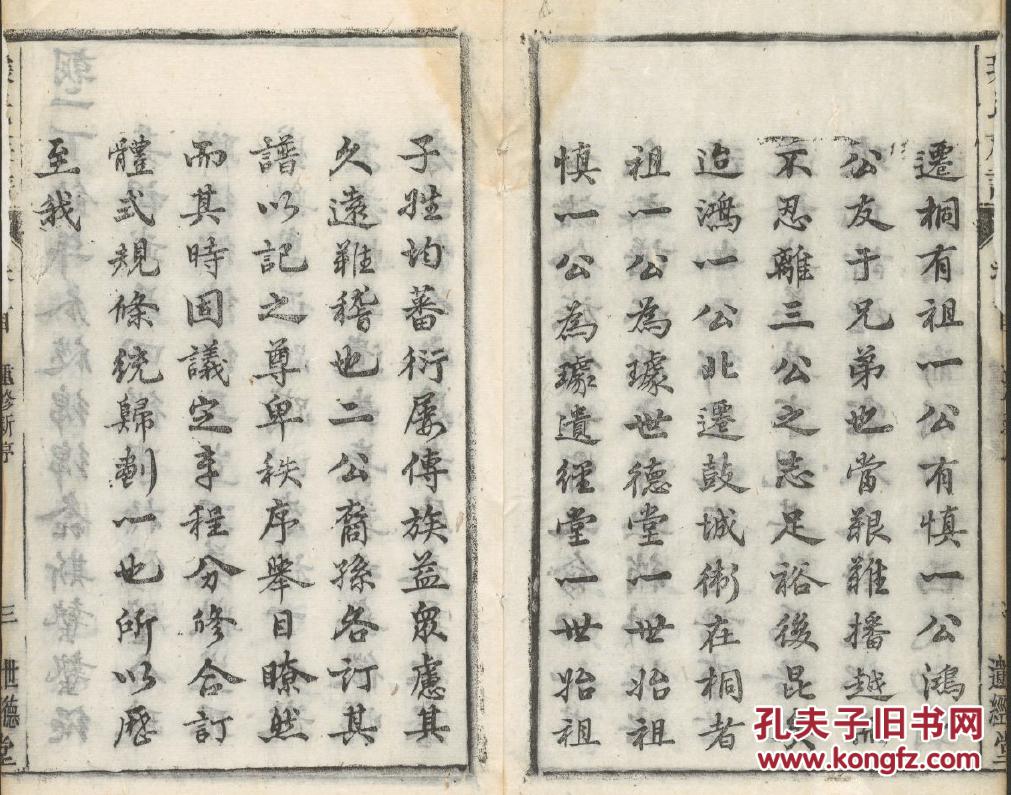 遷桐有祖一公有慎一公鴻一
公友于兄弟也當艱難播越
不忍離三公之志足裕後昆矣
迨鴻一公北遷鼓城衛在桐者
祖一公為璩世德堂一世始祖
慎一公為璩遺經堂一世始祖
遺經堂
子姓均蕃衍屡傳族益眾慮其
久遠難稽也二公裔孫各訂其
譜以記之尊卑秩序舉目瞭然
而其時固議定章程分修合訂
體式規條統歸劃一也所以歷
至我
重修新序
三
世德堂
孔夫子旧书网
kongfz.com